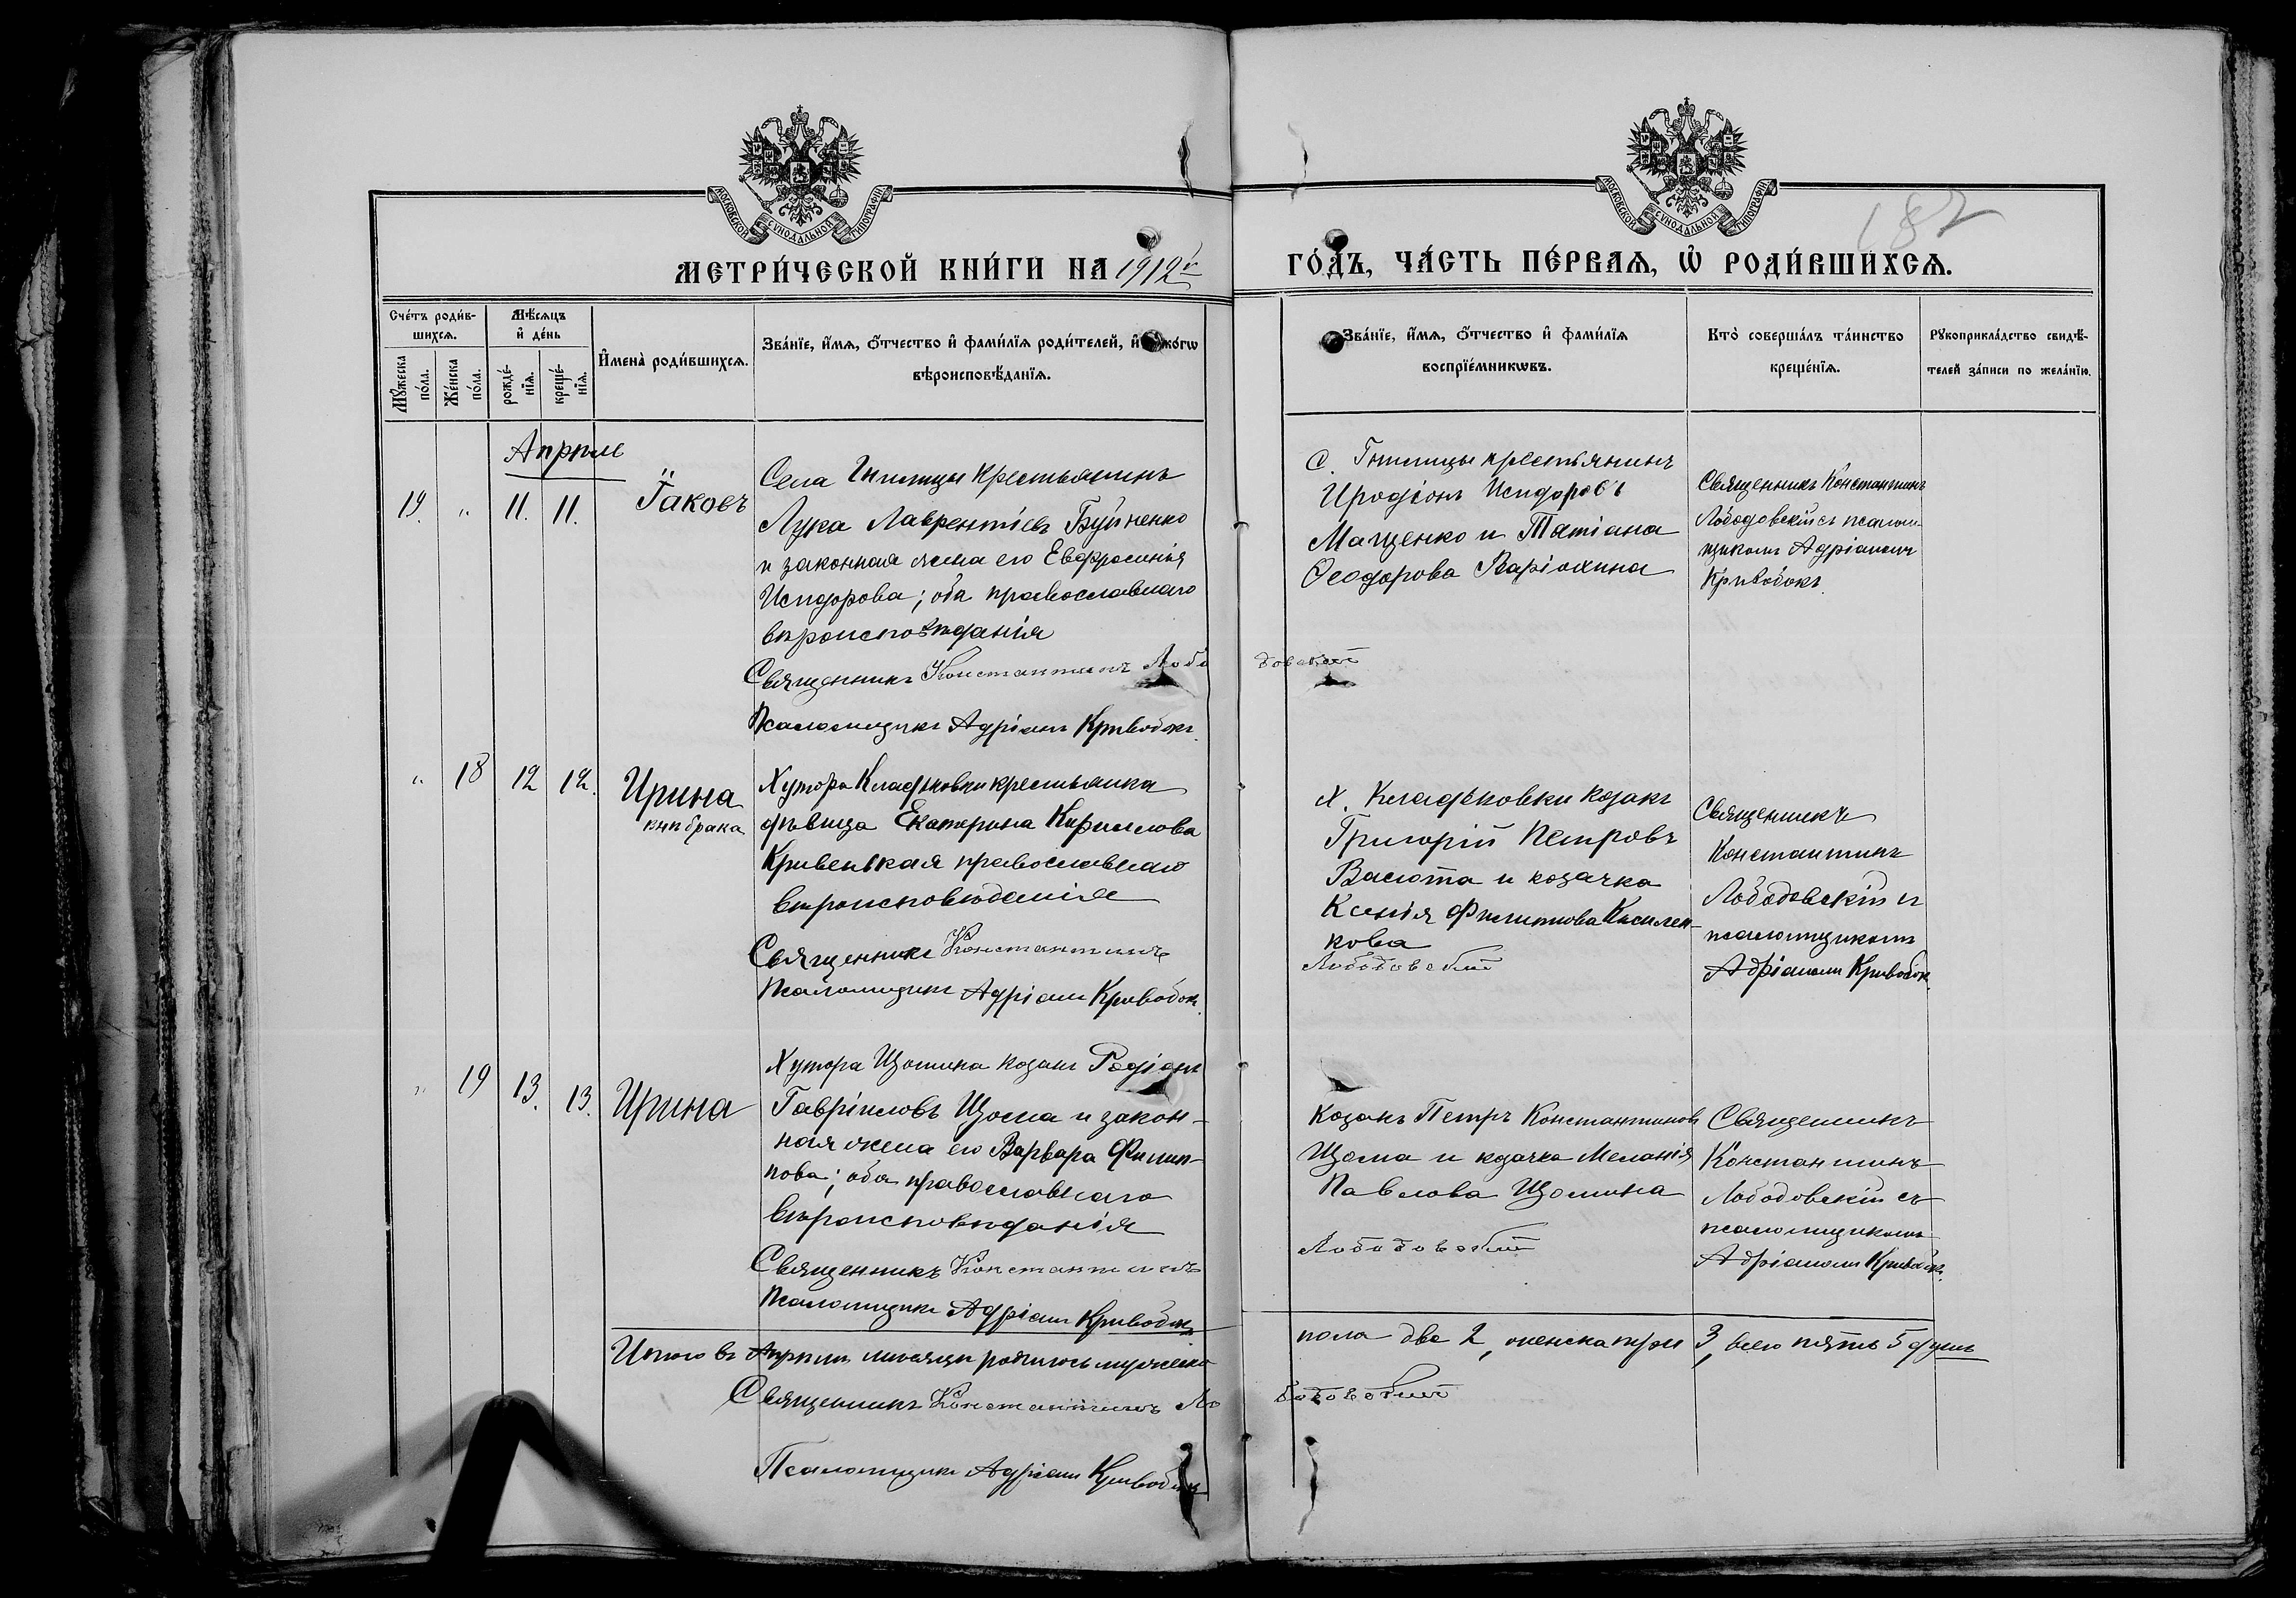 МОСКОВСКОЙ СѴНОДАЛЬНОЙ ТИПОГРАФІИ
МОСКОВСКОЙ СѴНОДАЛЬНОЙ ТИПОГРАФІИ
182
МЕТРИ́ЧЕСКОЙ КНИ́ГИ НА 1912 г
ГО́ДЪ, ЧА́СТЬ ПЕ́РВАѦ, Ѡ҆ РОДИ́ВШИХСѦ.
Сче́тъ роди́в-
шихсѧ.
Мꙋ́жеска по́ла.
Же́нска по́ла.
Мѣ́сѧцъ
и҆ де́нь
рожде́-нїѧ.
креще́-нїѧ.
И҆мена̀ роди́вшихсѧ.
Зва́нїе, и҆́мѧ, ѻ҆́тчество и҆ фами́лїѧ роди́телей, и҆ ко́гѡ
вѣроисповѣ́данїѧ.
Зва́нїе, и҆́мѧ, ѻ҆́тчество и҆ фами́лїѧ
воспрїе́мникѡвъ.
Кто̀ соверша́лъ та́инство
креще́нїѧ.
Рꙋкоприкла́дство свидѣ́-
телей за́писи по жела́нїю.
Апрѣль
19. " 11. 11. Іаковъ
Села Гнилицы Крестьянинъ
Лука Лаврентіевъ Буйненко
и законная жена его Евфросинія
Исидорова; оба православнаго
вѣроисповѣданія
Священникъ Константинъ Лободовскій
Псаломщикъ Адріанъ Кривобокъ.
С. Гнилицы крестьянинъ
Иродіонъ Исидоровъ
Мащенко и Татіана
Ѳеодорова
Священникъ Константинъ
Лободовскій съ псалом-
щикомъ Адріаномъ
Кривобокъ.
" 18 12 12. Ирина
внѣ брака
Хутора Кладьковки крестьянка
дѣвица Екатерина Кириллова
Кривенькая православнаго
вѣроисповѣданія
Священникъ Константинъ Лободовскій
Псаломщикъ Адріанъ Кривобокъ.
Х. Кладьковки козакъ
Григорій Петровъ
Васюта и козачка
Ксенія Филиппова
кова
Священникъ
Константинъ
Лободовскій и
псаломщикомъ
Адріаномъ Кривобокъ
" 19 13. 13. Ирина
Хутора Щомина козакъ Родіонъ
Гавріиловъ Щома и закон-
ная жена его Варвара Филип-
пова; оба православнаго
вѣроисповѣданія
Священникъ Константинъ Лободовскій
Псаломщикъ Адріанъ Кривобокъ
Козакъ Петръ Константиновъ
Щома и козачка Меланія
Павлова Щомина
Священникъ
Константинъ
Лободовскій съ
псаломщикомъ
Адріаномъ Кривобокъ.
Итого въ Апрѣлѣ мѣсяцѣ родилось мужеска пола два 2, женска три 3, всего пять 5 душъ
Священникъ Константинъ Лободовскій
Псаломщикъ Адріанъ Кривобокъ